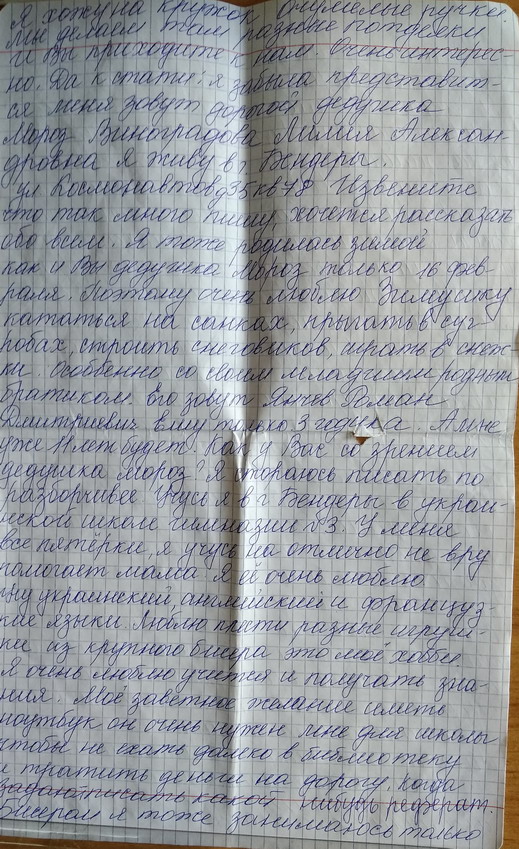 Я хожу на кружок очумелые ручки
Мы делаем там разные поделки
и Вы приходите к нам. Очень интерес-
но. Да к стати: я забыла представит-
ся меня зовут дорогой дедушка
Мороз Виноградова Лилия Алексан-
дровна я живу в г. Бендеры.
ул Космонавтов д35 кв 78 Извените
что так много пишу, хочется рассказать
обо всем. Я тоже родилась зимой
как и Вы дедушка Мороз только 16 фев-
раля. Поэтому очень люблю Зимушку
кататься на санках, прыгать в суг
робах, строить снеговиков, играть в снеж
ки. Особенно со своим младшим родным
братиком. Его зовут Янчев Роман
Дмитриевич ему только 3 годика. А мне
уже 11 лет будет. Как у Вас со зрением
дедушка Мороз? Я стораюсь писать по
разборчивее Учусь я в г. Бендеры в украи-
нской школе гимназии №3. У меня
все пятёрки, я учусь на отлично не вру
помогает мама. Я её очень люблю
учу украинский, английский и француз-
кие языки. Люблю плести разные игруш-
ки из крупного бисера это моё хобби.
Я очень люблю учится и получать зна-
ния. Моё заветное желание иметь
ноутбук он очень нужен мне для школы
чтобы не ехать далеко в библиотеку
и тратить деньги на дорогу, когда
писать какой пишуць реферат.
Бисером я тоже занимаюсь только